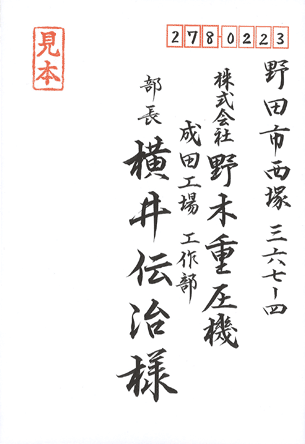 見本
2780223
野田市西塚三六七-四
株式会社 野末重圧機
成田工場 工作部
部長 横井伝治様